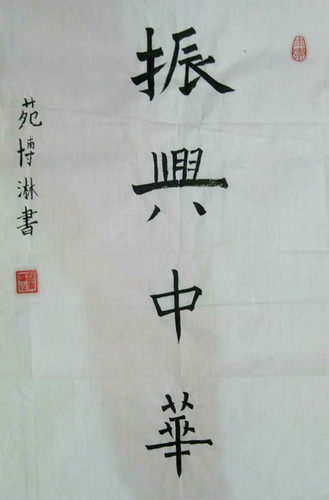 振興中華
苑博淋書